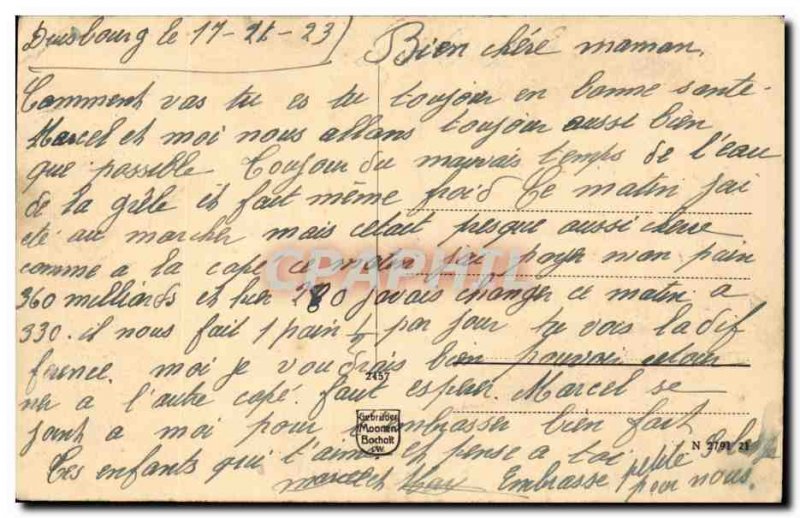 Duisbourg le 17-11-23
Bien chére maman,
Comment vas tu es tu toujour en bonne sante.
Marcel et moi nous allons toujour aussi bien
que possible Toujour du mauvais temps de l'eau
de la grêle it fait même froid Ce matin jai
été au marcher mais cetait presque aussi chere
comme a la cape ce matin jai payer mon pain
360 milliards et hier 280 javais changer ce matin a
330. il nous fait 1 pain ½ par jour tu vois la dif
ference. moi je voudrais bien pouvoir retour
ner a l'autre capé. faut esperer. Marcel se
joint a moi pour t'embrasser bien fort
Tes enfants qui t'aime et pense a toi
Marcel et Embrasse petite
pour nous.
CPAPHIL
2457
Gebrüder
Moonen
Bocholt
i/W.
N 2791 21